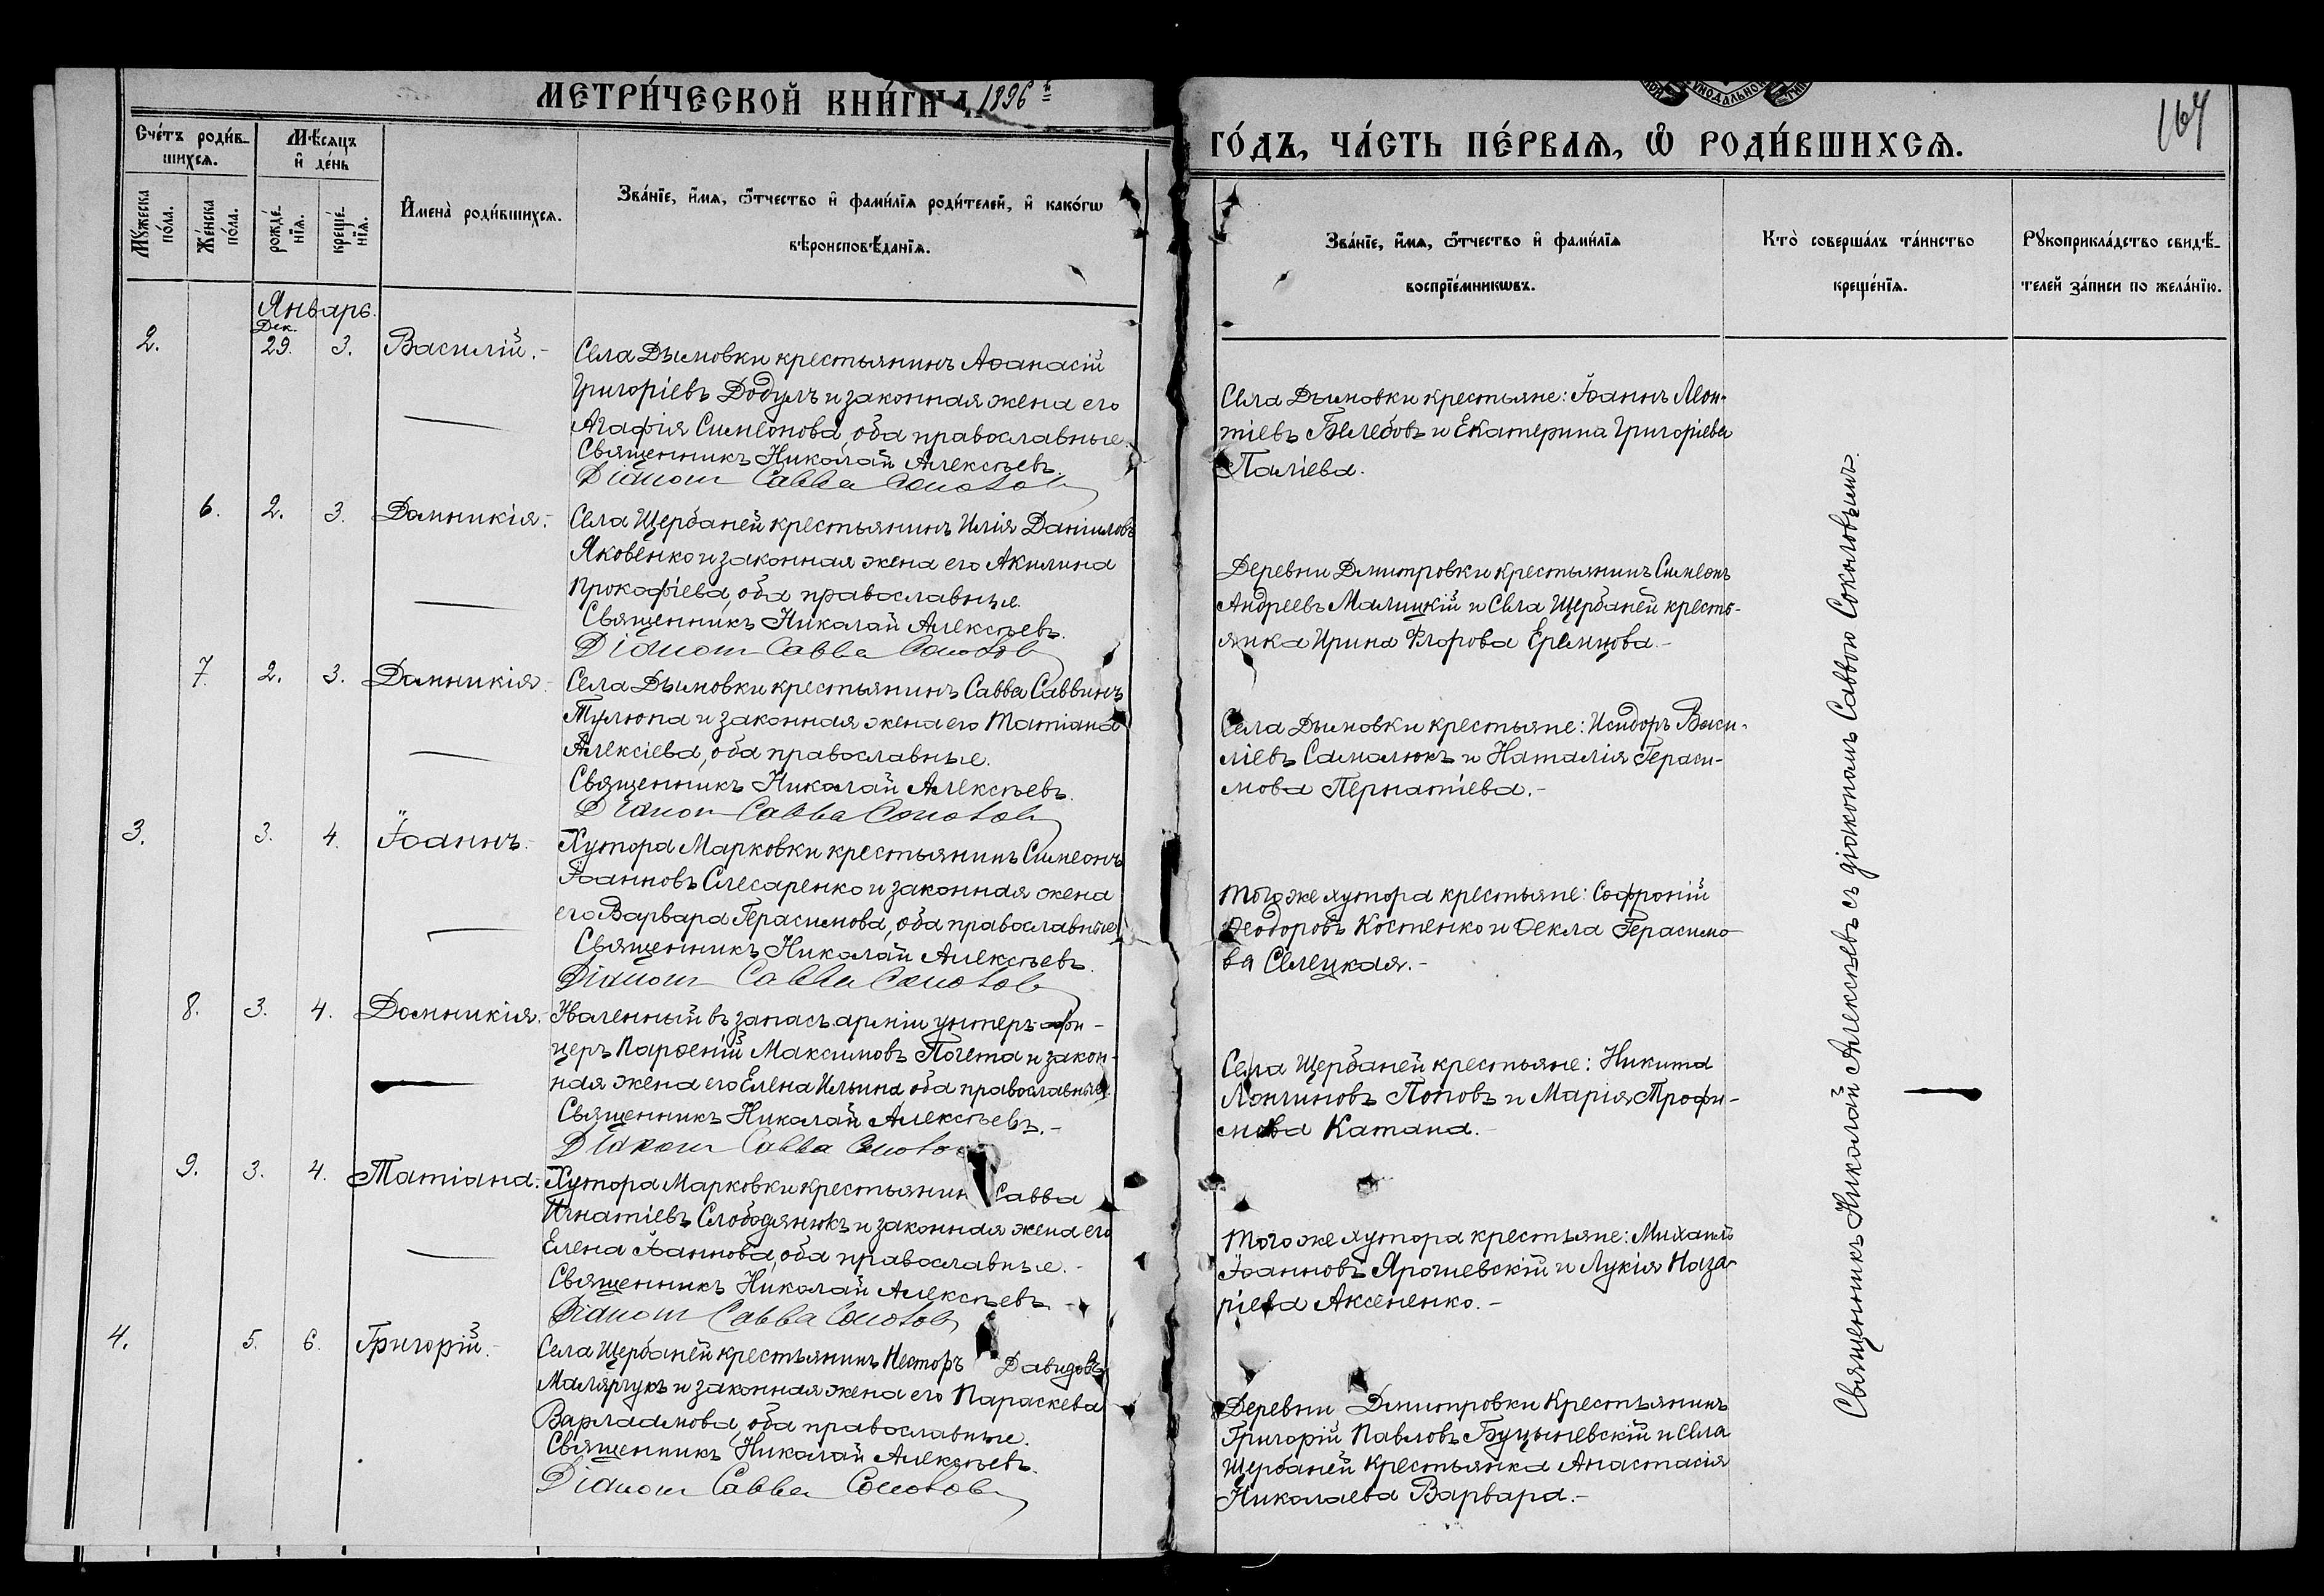 МЕТРИ́ЧЕСКОЙ КНИ́ГИ 1896
ГО́ДЪ, ЧА́СТЬ ПЕ́РВАѦ, Ѡ҆ РОДИ́ВШИХСѦ.
164
Сче́тъ роди́в-
шихсѧ.
Мѣ́сѧцъ
и҆ де́нь
Мꙋ́жеска
по́ла.
Же́нска
по́ла.
рожде́-
нїѧ.
креще́-
нїѧ.
И҆мена̀ роди́вшихсѧ.
Зва́нїе, и҆́мѧ, ѻ҆́тчество и҆ фами́лїѧ роди́телей, и҆ како́гѡ
вѣроисповѣ́данїѧ.
Зва́нїе, и҆́мѧ, ѻ҆́тчество и҆ фами́лїѧ
воспрїе́мникѡвъ.
Кто̀ соверша́лъ та́инство
креще́нїѧ.
Рꙋкоприкла́дство свидѣ́-
телей за́писи по жела́нїю.
Январь.
Дек.
2. 29. 3. Василій.-
Села Дымовки крестьянинъ Аѳанасій
Григоріевъ Додулъ и законная жена его
Агафія Симеонова, оба православные.
Священникъ Николай Алексѣевъ.
Діаконъ Савва Соколовъ
Села Дымовки крестьяне: Іоаннъ Леон-
тіевъ Белебовъ и Екатерина Григоріева
Паліева.
6. 2. 3. Домникія.-
Села Щербаней крестьянинъ Илія Даніиловъ
Яковенко и законная жена его Акилина
Прокофіева, оба православные.
Священникъ Николай Алексѣевъ.
Діаконъ Савва Соколовъ
Деревни Димитровки крестьянинъ Симеонъ
Андреевъ Малицкій и села Щербаней кресть-
янка Ирина Флорова Еремцова.-
7. 2. 3. Домникія.
Села Дымовки крестьянинъ Савва Саввинъ
Тулюпа и законная жена его Татіана
Алексіева, оба православные.
Священникъ Николай Алексѣевъ.
Діаконъ Савва Соколовъ
Села Дымовки крестьяне: Исидоръ Васи-
ліевъ Самалюкъ и Наталія Гераси-
мова Пернатіева.-
3. 3. 4. Іоаннъ.-
Хутора Марковки крестьянинъ Симеонъ
Іоанновъ Слесаренко и законная жена
его Варвара Герасимова, оба православные
Священникъ Николай Алексѣевъ.
Діаконъ Савва Соколовъ
Того же хутора крестьяне: Софроній
Ѳеодоровъ Костенко и Ѳекла Герасимо-
ва Селецкая.-
8. 3. 4. Домникія.
Уволенный въ запасъ арміи унтеръ-офи-
церъ Парѳеній Максимовъ Почета и закон-
ная жена его Елена Ильина оба православные.
Священникъ Николай Алексѣевъ.-
Діаконъ Савва Соколовъ
Села Щербаней крестьяне: Никита
Лонгиновъ Поповъ и Марія Трофи-
мова Катана.-
9. 3. 4. Татіана.
Хутора Марковки крестьянинъ Савва
Игнатіевъ Слободянюкъ и законная жена его
Елена Іоаннова, оба православные.-
Священникъ Николай Алексѣевъ.-
Діаконъ Савва Соколовъ
Того же хутора крестьяне: Михаилъ
Іоанновъ Ярошевскій и Лукія Наза-
ріева Аксененко.-
4. 5. 6. Григорій.-
Села Щербаней крестьянинъ Несторъ Давидовъ
Малярчукъ и законная жена его Параскева
Варлаамова, оба православные.
Священникъ Николай Алексѣевъ.
Діаконъ Савва Соколовъ
Деревни Димитровки крестьянинъ
Григорій Павловъ Буцыневскій и села
Щербаней крестьянка Анастасія
Николаева Варвара.-
Священникъ Николай Алексѣевъ съ діакономъ Саввою Соколовымъ.